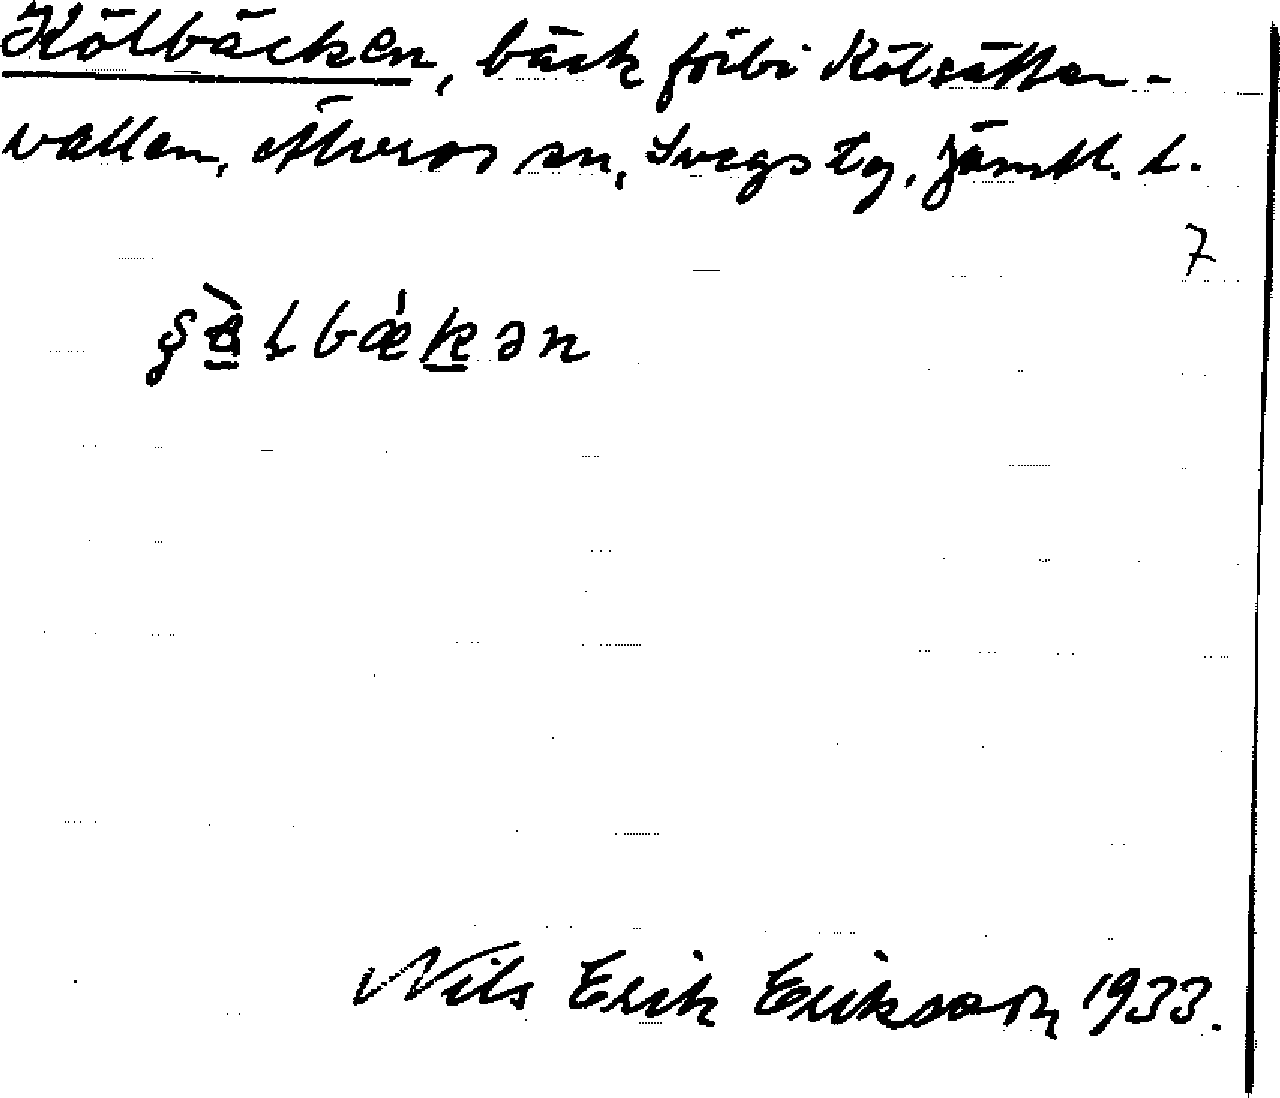 Kölbäcken, bäck förbi Kölsätter-
vallen, Älvros sn, Svegs tg, Jämtl. l.
7
Nils Erik Eriksson 1933.